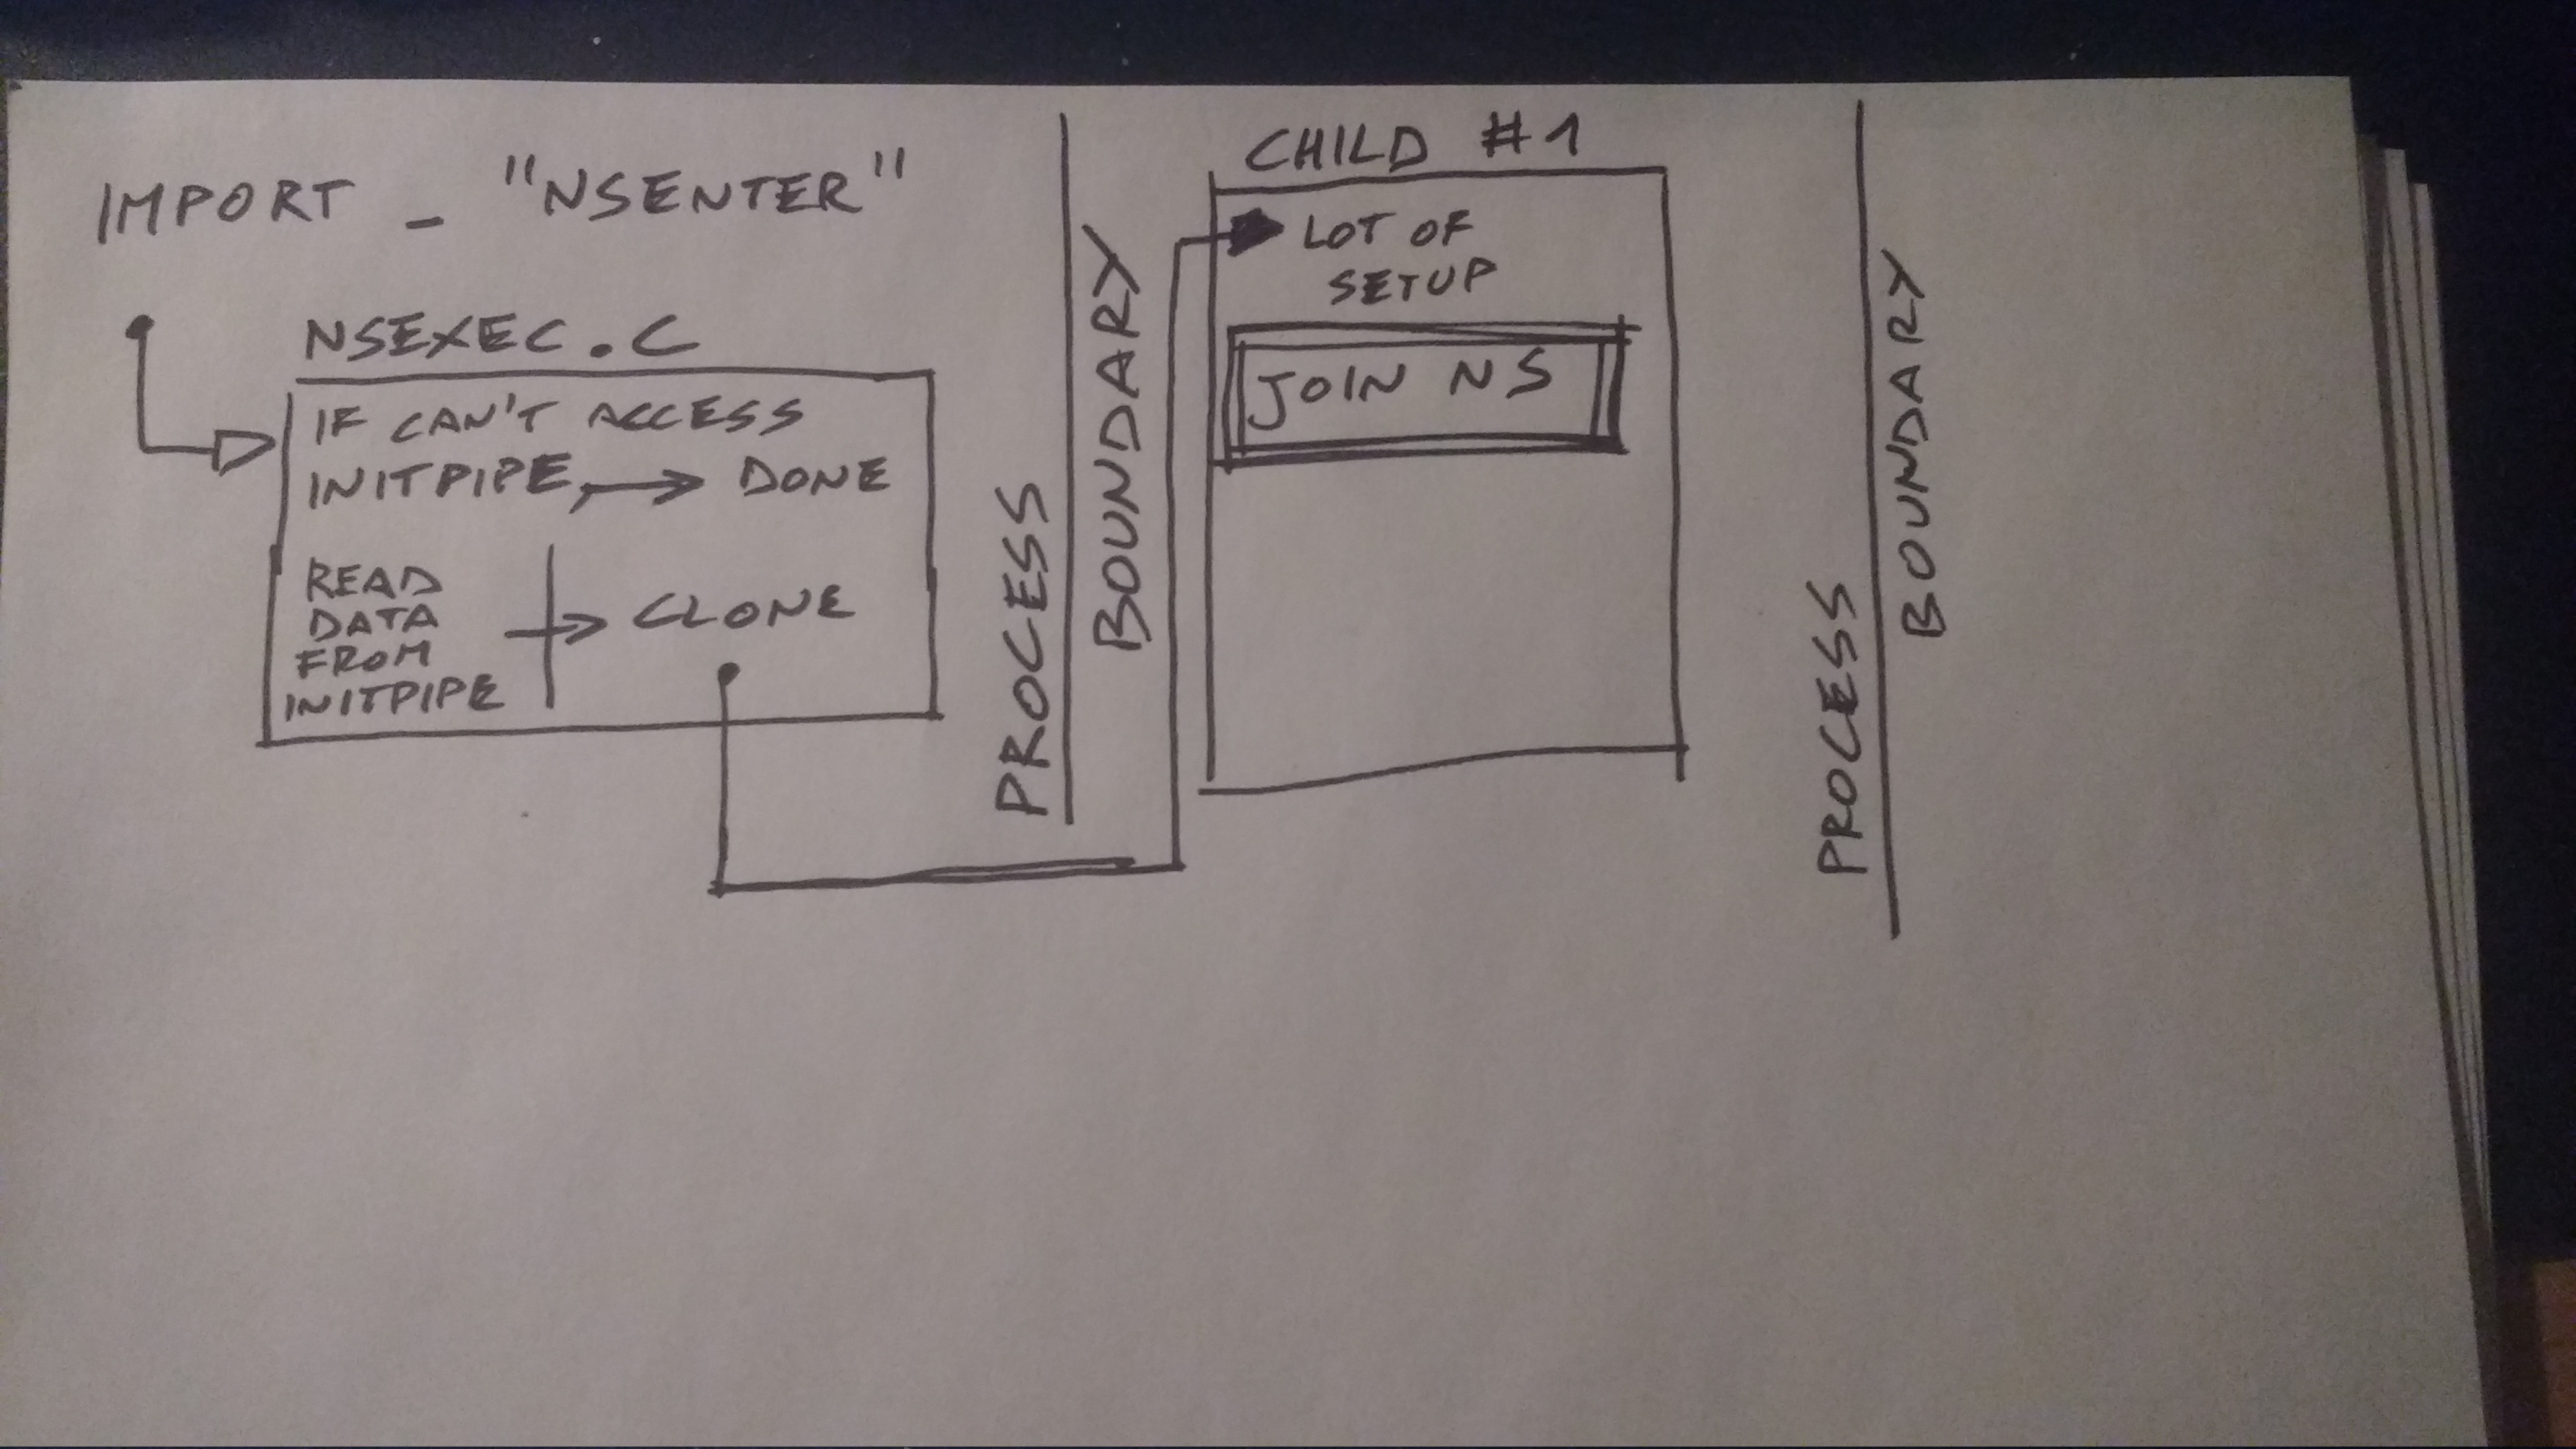 IMPORT _ "NSENTER"
NSEXEC.C
IF CAN'T ACCESS
INITPIPE, → DONE
READ
DATA
FROM
INITPIPE
→ CLONE
PROCESS
BOUNDARY
CHILD #1
LOT OF
SETUP
JOIN NS
PROCESS
BOUNDARY